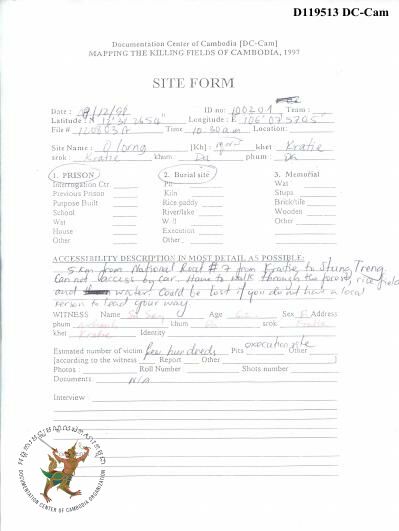 D119513 DC-Cam
Documentation Center of Cambodia [DC-Cam]
MAPPING THE KILLING FIELDS OF CAMBODIA, 1997
SITE FORM
Date : ID no: 100201 Team :
Latitude : N Longitude : E 106° 07'5705"
File # 120803A Time 10:30am Location:
Site Name : [Kh] : khet Kratie
srok : Kratie khum Da phum : Da
1. PRISON 2. Burial site 3. Memorial
Interrogation Ctr. Pit Wat
Previous Prison Kiln Stupa
Purpose Built Rice paddy Brick/tile
School River/lake Wooden
Wat Well Other
House Execution
Other Other
ACCESSIBILITY DESCRIPTION IN MOST DETAIL AS POSSIBLE:
5 Km from National Road # 7 from Kratie to Stung Treng
Can not access by car. Have to walk through the forest, rice field
and water. Could be lost if you do not have a local
person to lead your way.
WITNESS Name Age Sex F Address
phum khum Da srok Kratie
khet Kratie Identity
execution site
Estimated number of victim few hundreds Pits Other
[according to the witness Report Other ]
Photos : Roll Number Shots number
Documents N/A
Interview :
DOCUMENTATION CENTER OF CAMBODIA ORGANIZATION